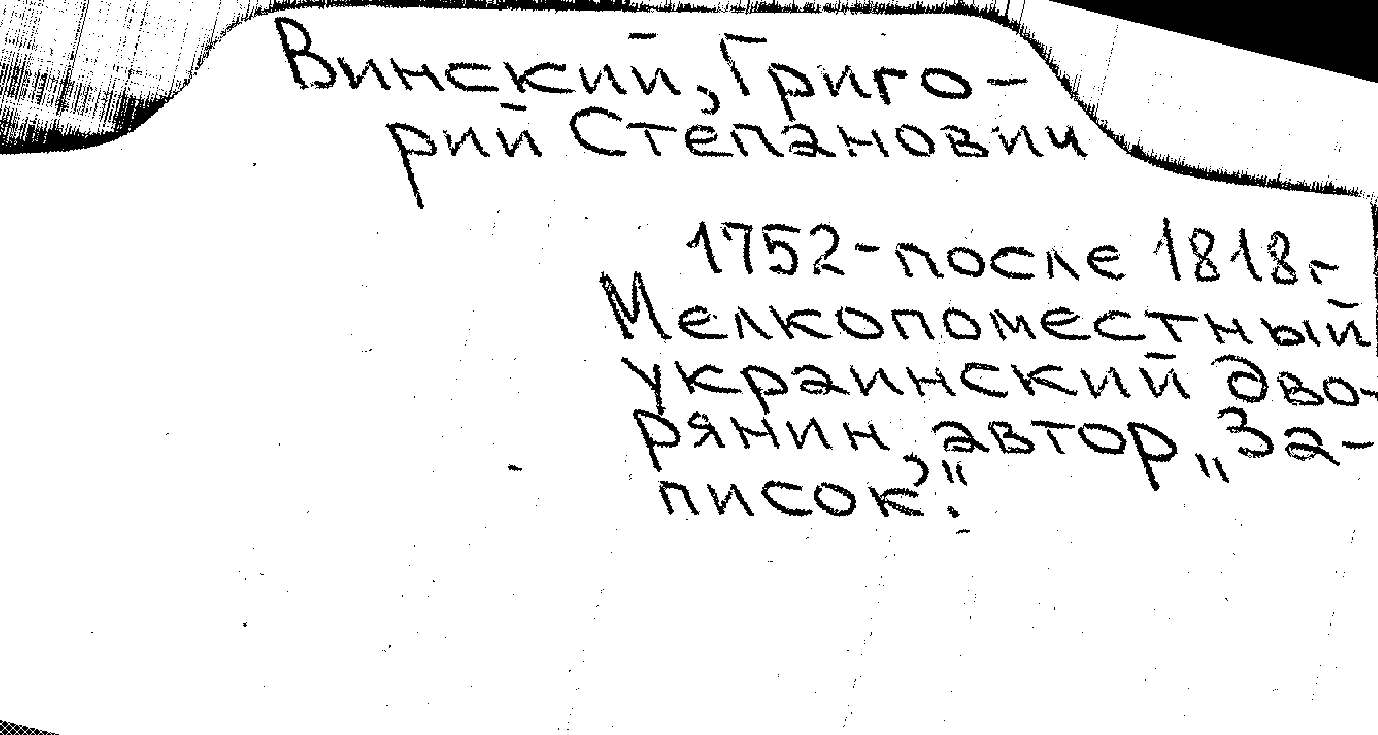 Винский, Григо-
рий Степанович
1752 - после 1818 г
Мелкопоместный
украинский дво-
рянин, автор „За-
писок".